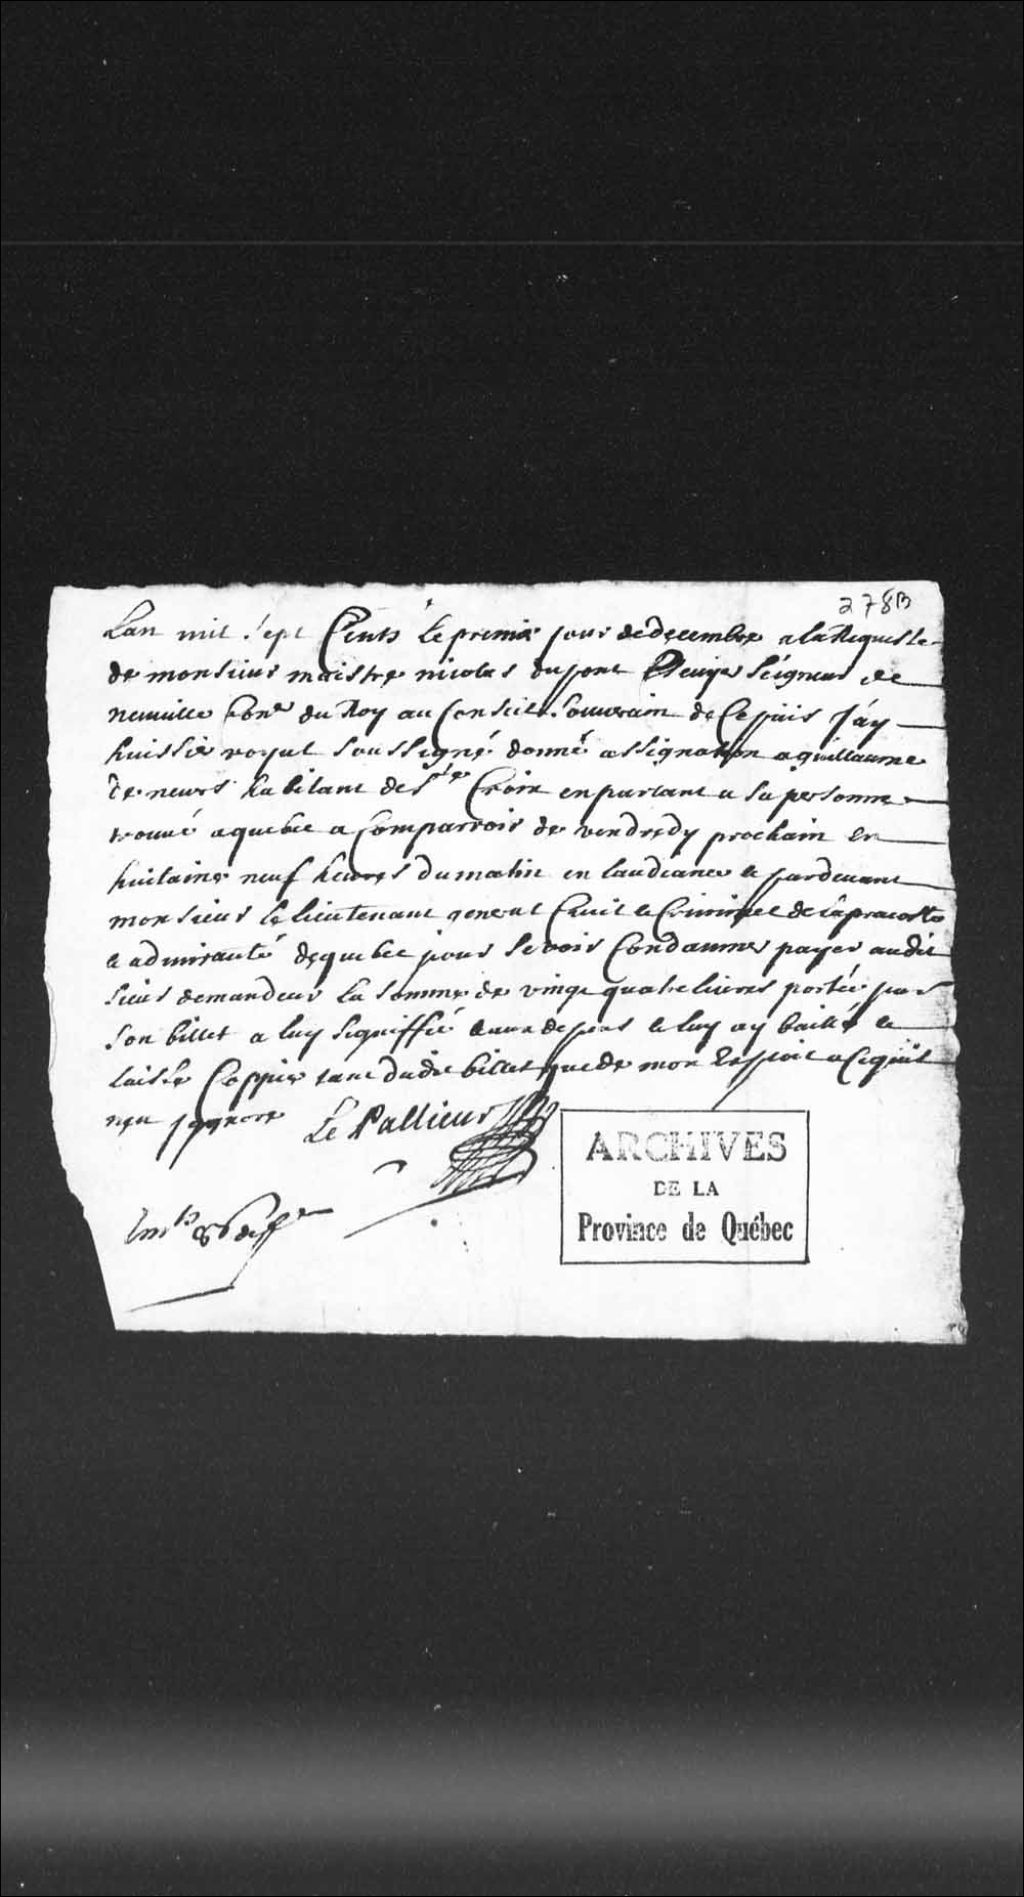 278B
Lan mil Sept Cents le premier jour de decembre a la Requeste
de monsieur maistre nicolas dupont Escuyer Seigneur de
neuuille Coner du Roy au Conseil Souuerain de Ce païs Jáy
huissier royal soussigné donné assignation a guillaume
de neuers habitant de Ste Croix en parlant a sa personne
trouué a quebec a Comparroir de vendredy prochain en
huitaine neuf heures du matin en laudiance e pardeuant
monsieur le lieutenant general Ciuil e Criminel de la preuosté
e admirauté de quebec pour se voir Condamner payer audit
sieur demandeur la somme de vingt quatre liures portée par
son billet a luy signiffié e aux despens e luy ay baillé e
laissé Coppie tant dudit billet que de mon Exploit a Ce quil
nen jgnore Le Pallieur
ARCHIVES
DE LA
Province de Québec